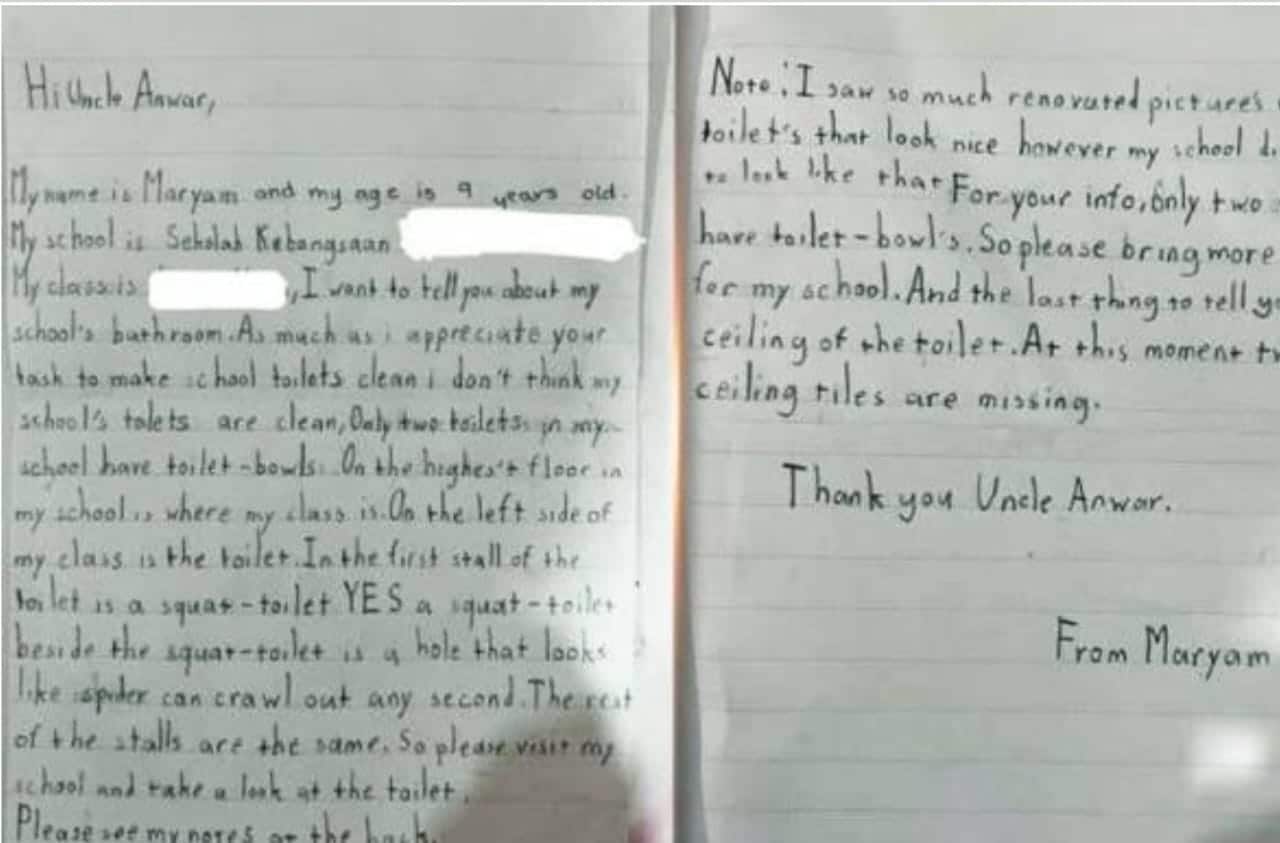 Hi Uncle Anwar,
My name is Maryam and my age is 9 years old.
My school is Sekolah Kebangsaan
My class is , I want to tell you about my
school's bathroom. As much as i appreciate your
task to make school toilets clean i don't think my
school's tolets are clean, Only two toilets in my
school have toilet-bowls. On the highes't floor in
my school is where my class is. On the left side of
my class is the toilet. In the first stall of the
toilet is a squat-toilet YES a squat-toilet
beside the squat-toilet is a hole that looks
like spider can crawl out any second. The rest
of the stalls are the same. So please visit my
school and take a look at the toilet.
Please see my notes at the back.
Note: I saw so much renovated picture's
toilet's that look nice however my school
to look like that For your info, only two
have toilet-bowl's. So please bring more
for my school. And the last thing to tell
ceiling of the toilet. At this moment
ceiling tiles are missing.
Thank you Uncle Anwar.
From Maryam